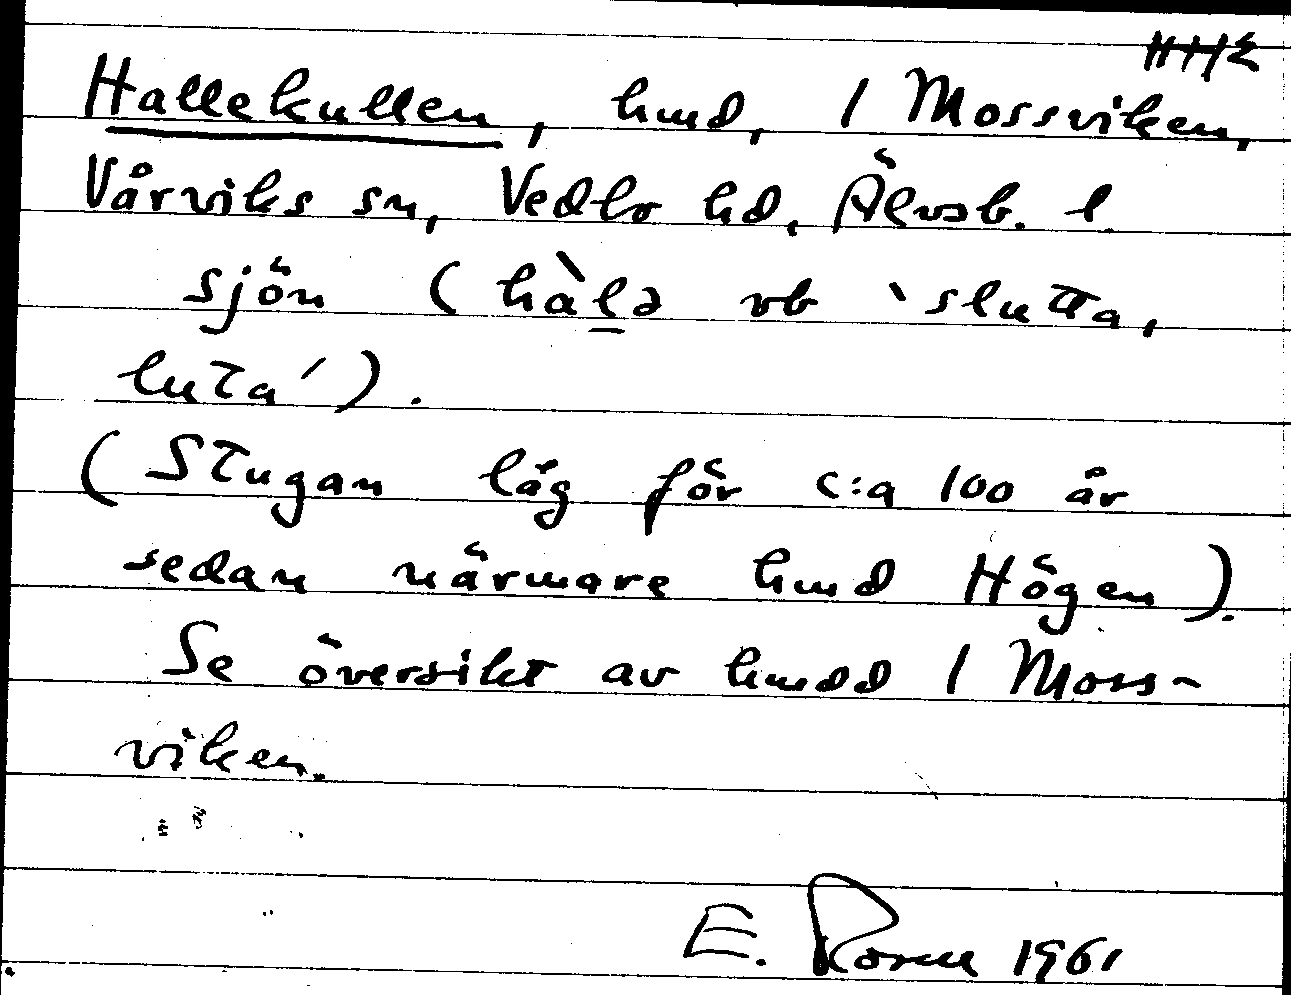 Hallekullen, hmd, 1 Mossviken,
Vårviks sn, Vedbo hd, Älvsb. l.
sjön (hàlə vb 'slutta,
luta').
(Stugan låg för c:a 100 år
sedan närmare hmd Högen).
Se översikt av hmdd 1 Moss-
viken.
E. Rosell 1961